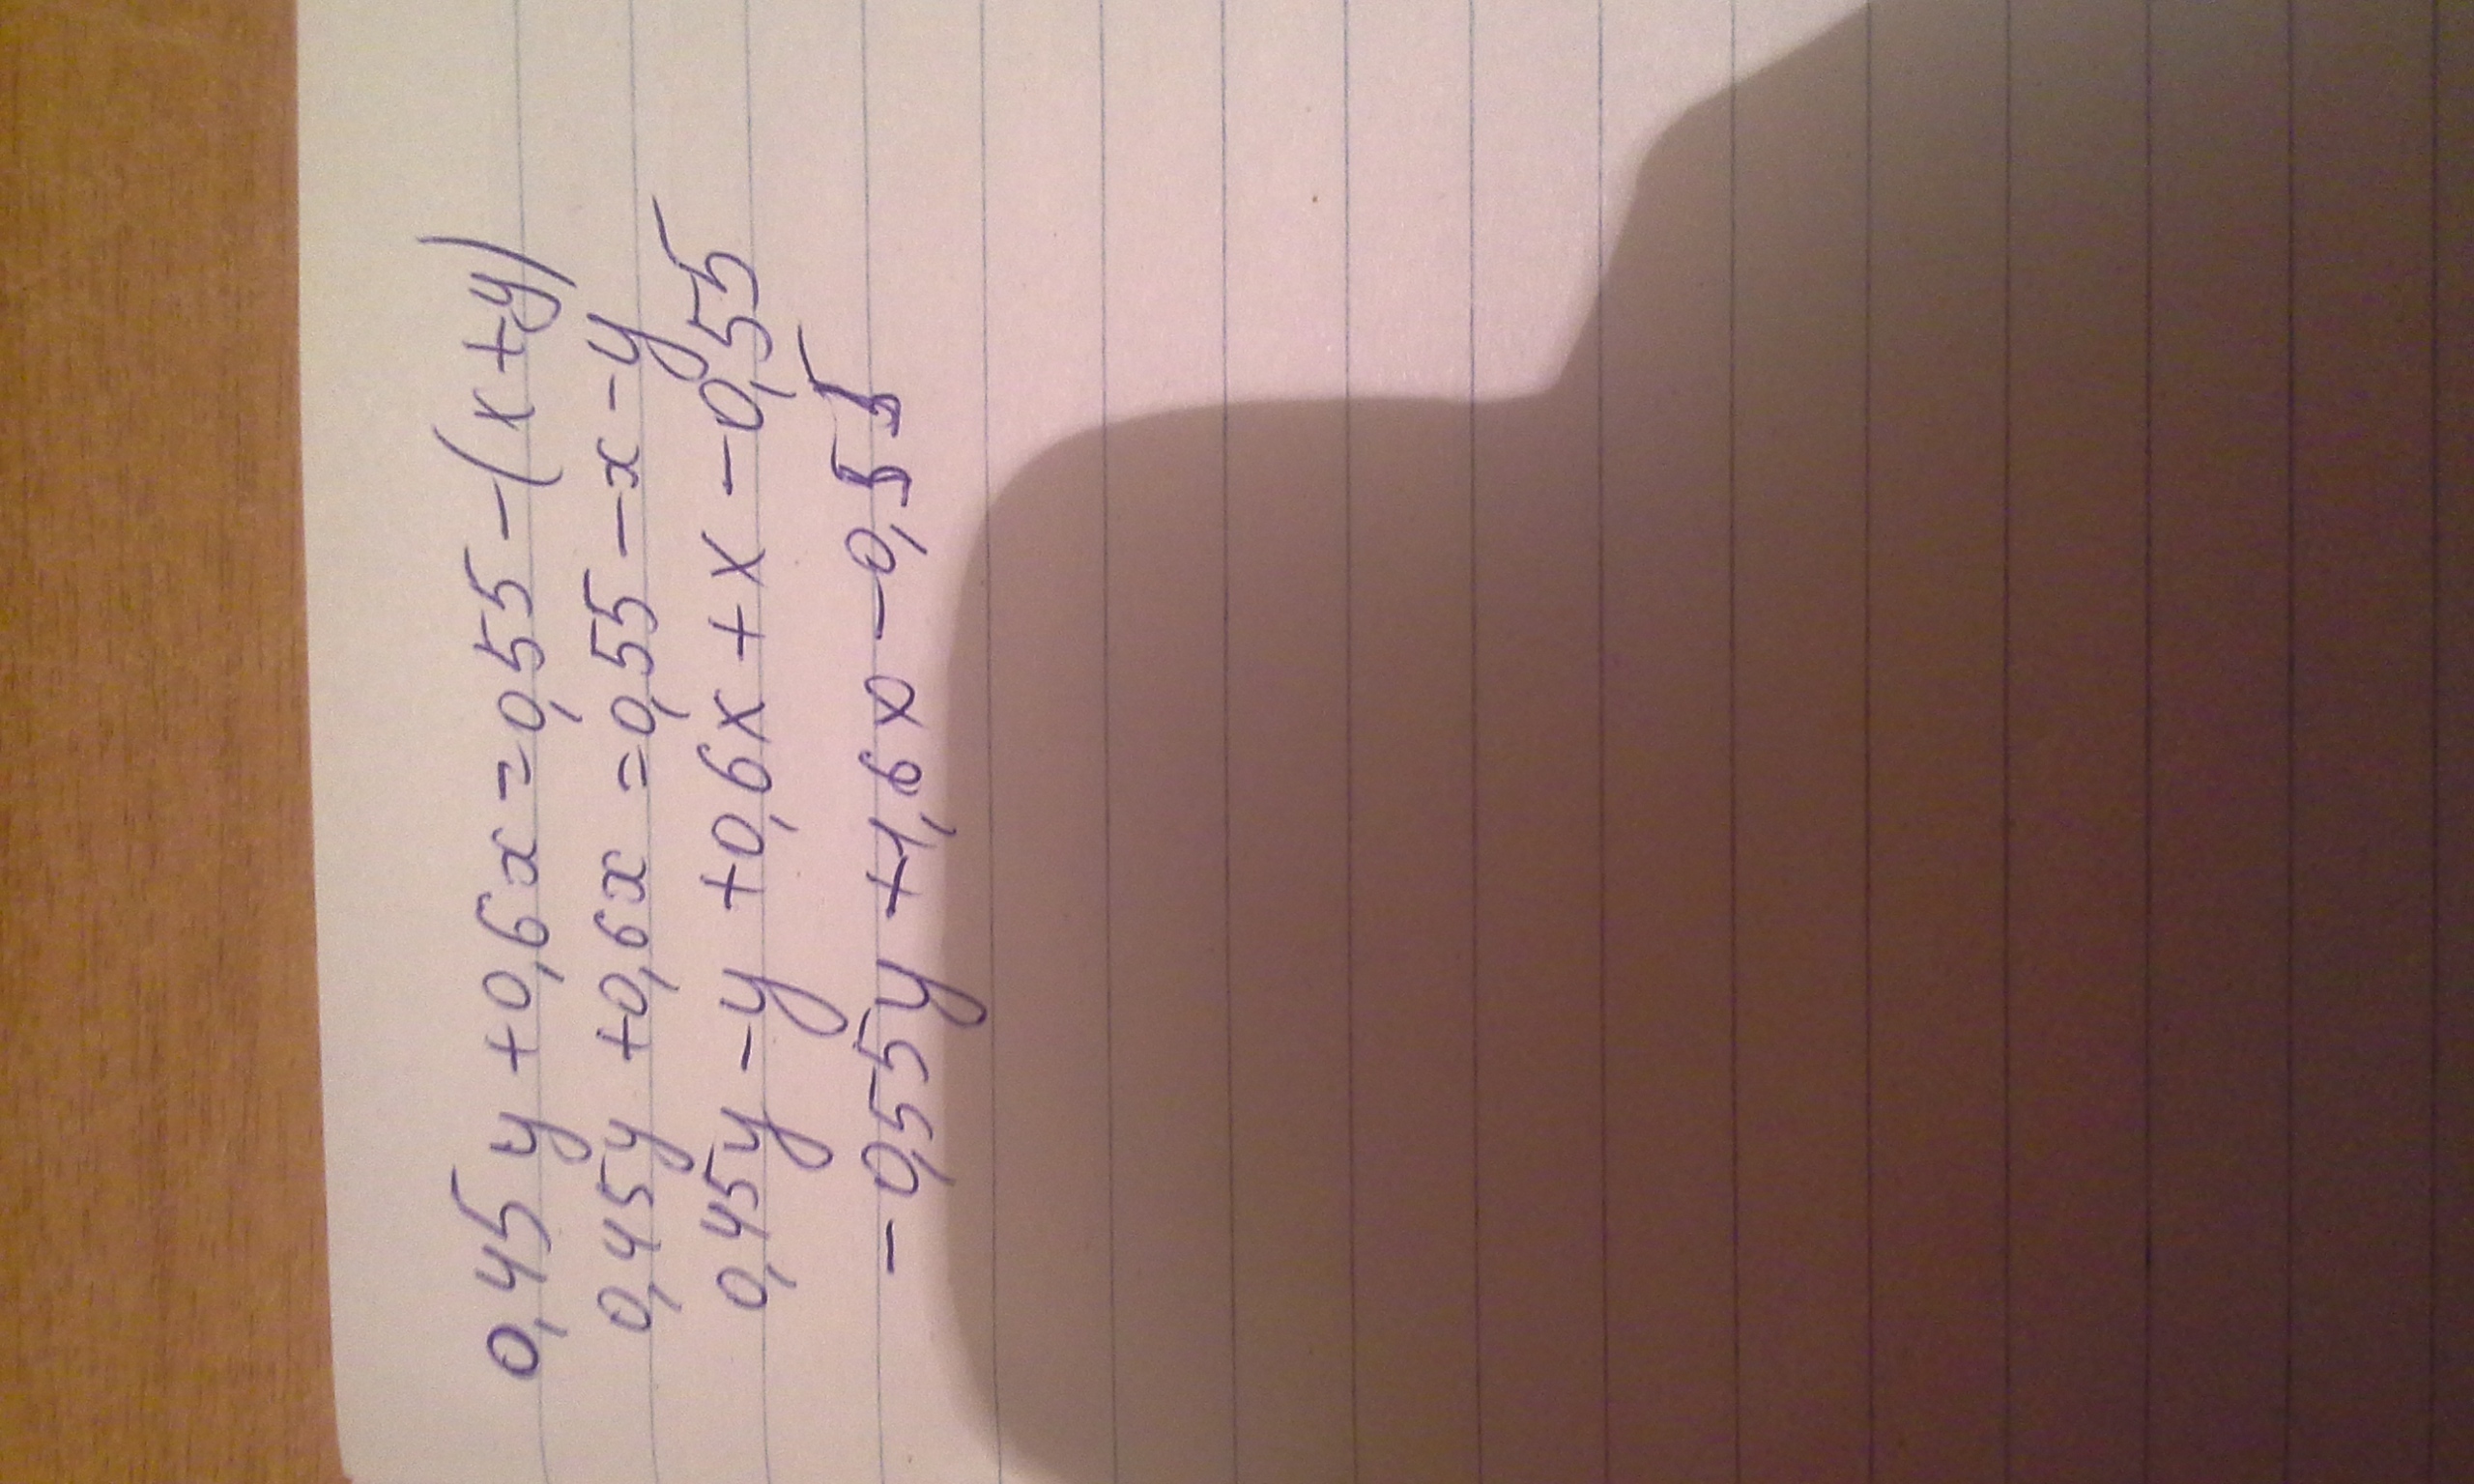 0,45y+0,6x=0,55-(x+y)
0,45y+0,6x=0,55-x-y
0,45y-y+0,6x+x-0,55
-0,55y+1,6x-0,55